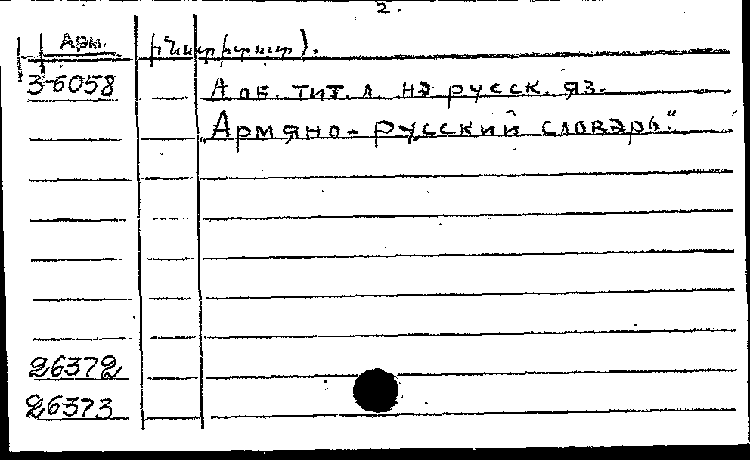 2.
Арм.
3-6058
Доб. тит. л. на русск. яз.
„Армяно-русский словарь."
26372
26373